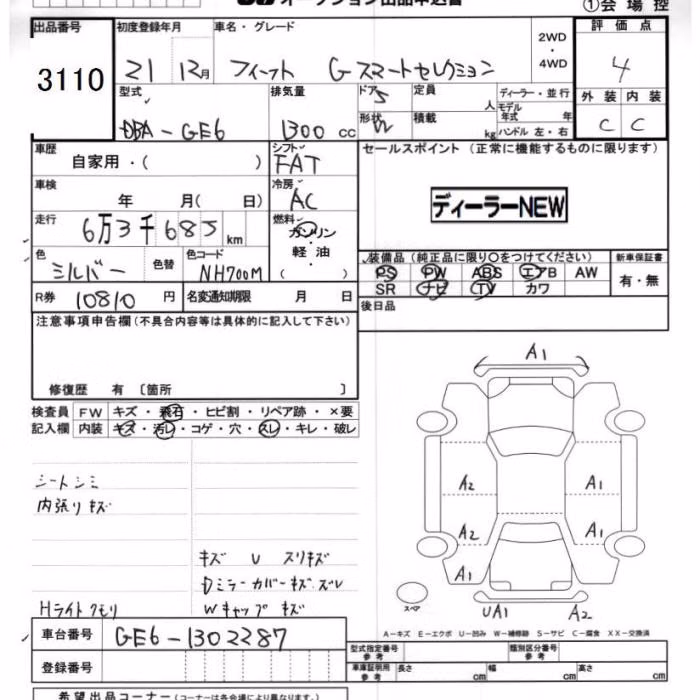 オークション出品申込書
①会場控
出品番号
3110
初度登録年月
21 12月
車名・グレード
フィット Gスマートセレクション
2WD・4WD
評価点
4
型式
DBA-GE6
排気量
1300 cc
ドア
5
形状
W
定員
人
積載
kg
ディーラー・並行
モデル年式 年
ハンドル 左・右
外装 内装
C C
車歴
自家用・( )
シフト
FAT
セールスポイント (正常に機能するものに限ります)
車検
年 月( 日)
冷房
AC
ディーラーNEW
走行
6万3千685 km
燃料
ガソリン
軽油
( )
色
シルバー
色替
色コード
NH700M
装備品 (純正品に限り○をつけてください)
新車保証書
PS PW ABS エアB AW
SR ナビ TV カワ
有・無
R券
10810 円
名変通知期限 月 日
後日品
注意事項申告欄 (不具合内容等は具体的に記入して下さい)
修復歴 有 〔箇所 〕
検査員記入欄
FW キズ・飛石・ヒビ割・リペア跡・×要
内装 キズ・汚レ・コゲ・穴・スレ・キレ・破レ
シートシミ
内張りキズ
キズ U スリキズ
Dミラーカバーキズ・ズレ
Hライトクモリ
Wキャップキズ
A1
A2 A1
A2 A1
A1
スペア
UA1 A2
A-キズ E-エクボ U-凹み W-補修跡 S-サビ C-腐食 XX-交換済
車台番号
GE6-1302287
登録番号
型式指定番号 参考
類別区分番号 参考
車庫証明用 参考
長さ cm 幅 cm 高さ cm
希望出品コーナー (コーナーは各会場により異なります。)